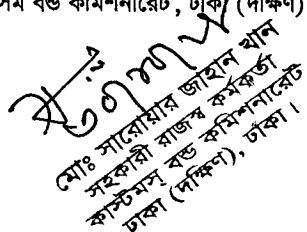 বন্ড কমিশনারেট, ঢাকা (দক্ষিণ)
মোঃ সারোয়ার জাহান খান
সহকারী রাজস্ব কর্মকর্তা
কাস্টমস্ বন্ড কমিশনারেট
ঢাকা (দক্ষিণ), ঢাকা।